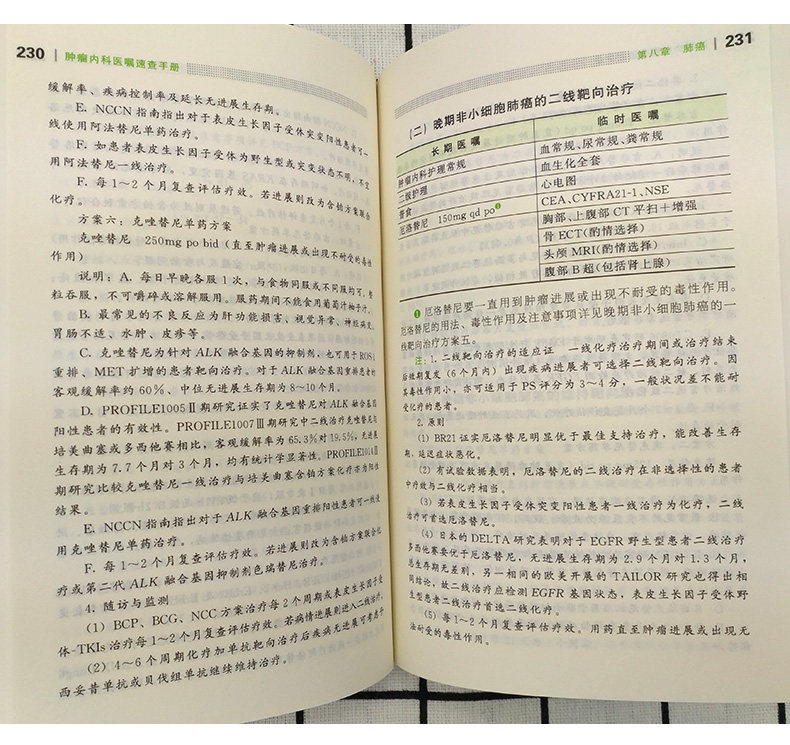 230 | 肿瘤内科医嘱速查手册
缓解率、疾病控制率及延长无进展生存期。
E. NCCN 指南指出对于表皮生长因子受体突变阳性患者可一
线使用阿法替尼单药治疗。
F. 如患者表皮生长因子受体为野生型或突变状态不明，不宜
用阿法替尼一线治疗。
F. 每 1～2 个月复查评估疗效。若进展则改为含铂方案联合
化疗。
方案六：克唑替尼单药方案
克唑替尼 250mg po bid（直至肿瘤进展或出现不耐受的毒性
作用）
说明：A. 每日早晚各服 1 次，与食物同服或不同服均可，整
粒吞服，不可嚼碎或溶解服用。服药期间不能食用葡萄汁柚子汁。
B. 最常见的不良反应为肝功能损害、视觉异常、神经病变、
胃肠不适、水肿、皮疹等。
C. 克唑替尼为针对 ALK 融合基因的抑制剂，也可用于 ROS1
重排、MET 扩增的患者靶向治疗。对于 ALK 融合基因重排患者的
客观缓解率约 60％、中位无进展生存期为 8～10 个月。
D. PROFILE1005Ⅱ期研究证实了克唑替尼对 ALK 融合基因
阳性患者的有效性。PROFILE1007Ⅲ期研究中二线治疗克唑替尼与
培美曲塞或多西他赛相比，客观缓解率为 65.3％对 19.5％，无进展
生存期为 7.7 个月对 3 个月，均有统计学显著性。PROFILE1014Ⅲ
期研究比较克唑替尼一线治疗与培美曲塞含铂方案化疗亦为阳性
结果。
E. NCCN 指南指出对于 ALK 融合基因重排阳性患者可一线使
用克唑替尼单药治疗。
F. 每 1～2 个月复查评估疗效。若进展则改为含铂方案联合化
疗或第二代 ALK 融合基因抑制剂色瑞替尼治疗。
4. 随访与监测
（1）BCP、BCG、NCC 方案治疗每 2 个周期或表皮生长因子受
体-TKIs 治疗每 1～2 个月复查评估疗效。若病情进展则进入二线治疗。
（2）4～6 个周期化疗加单抗靶向治疗后疾病无进展可考虑予
西妥昔单抗或贝伐组单抗继续维持治疗。
第八章 肺癌 | 231
（二）晚期非小细胞肺癌的二线靶向治疗
长期医嘱 临时医嘱
肿瘤内科护理常规 血常规、尿常规、粪常规
二级护理 血生化全套
普食 心电图
厄洛替尼 150mg qd po❶ CEA、CYFRA21-1、NSE
胸部、上腹部 CT 平扫＋增强
骨 ECT(酌情选择)
头颅 MRI(酌情选择)
腹部 B 超(包括肾上腺)
❶ 厄洛替尼要一直用到肿瘤进展或出现不耐受的毒性作用。
厄洛替尼的用法、毒性作用及注意事项详见晚期非小细胞肺癌的一
线靶向治疗方案五。
注：1. 二线靶向治疗的适应证 一线化疗治疗期间或治疗结束
后效期复发（6 个月内）出现疾病进展者可选择二线靶向治疗。因
其毒性作用小，亦可适用于 PS 评分为 3～4 分，一般状况差不能耐
受化疗的患者。
2. 原则
（1）BR21 证实厄洛替尼明显优于最佳支持治疗，能改善生存
期，延迟症状恶化。
（2）有试验数据表明，厄洛替尼的二线治疗在非选择性的患者
中疗效与二线化疗相当。
（3）若表皮生长因子受体突变阳性患者一线治疗为化疗，二线
治疗可首选厄洛替尼。
（4）日本的 DELTA 研究表明对于 EGFR 野生型患者二线治疗
多西他赛要优于厄洛替尼，无进展生存期为 2.9 个月对 1.3 个月，
总生存期无差别，另一相间的欧美开展的 TAILOR 研究也得出相
同结论，故二线治疗应检测 EGFR 基因状态，表皮生长因子受体野
生型患者二线治疗首选二线化疗。
（5）每 1～2 个月复查评估疗效。用药直至肿瘤进展或出现无
法耐受的毒性作用。